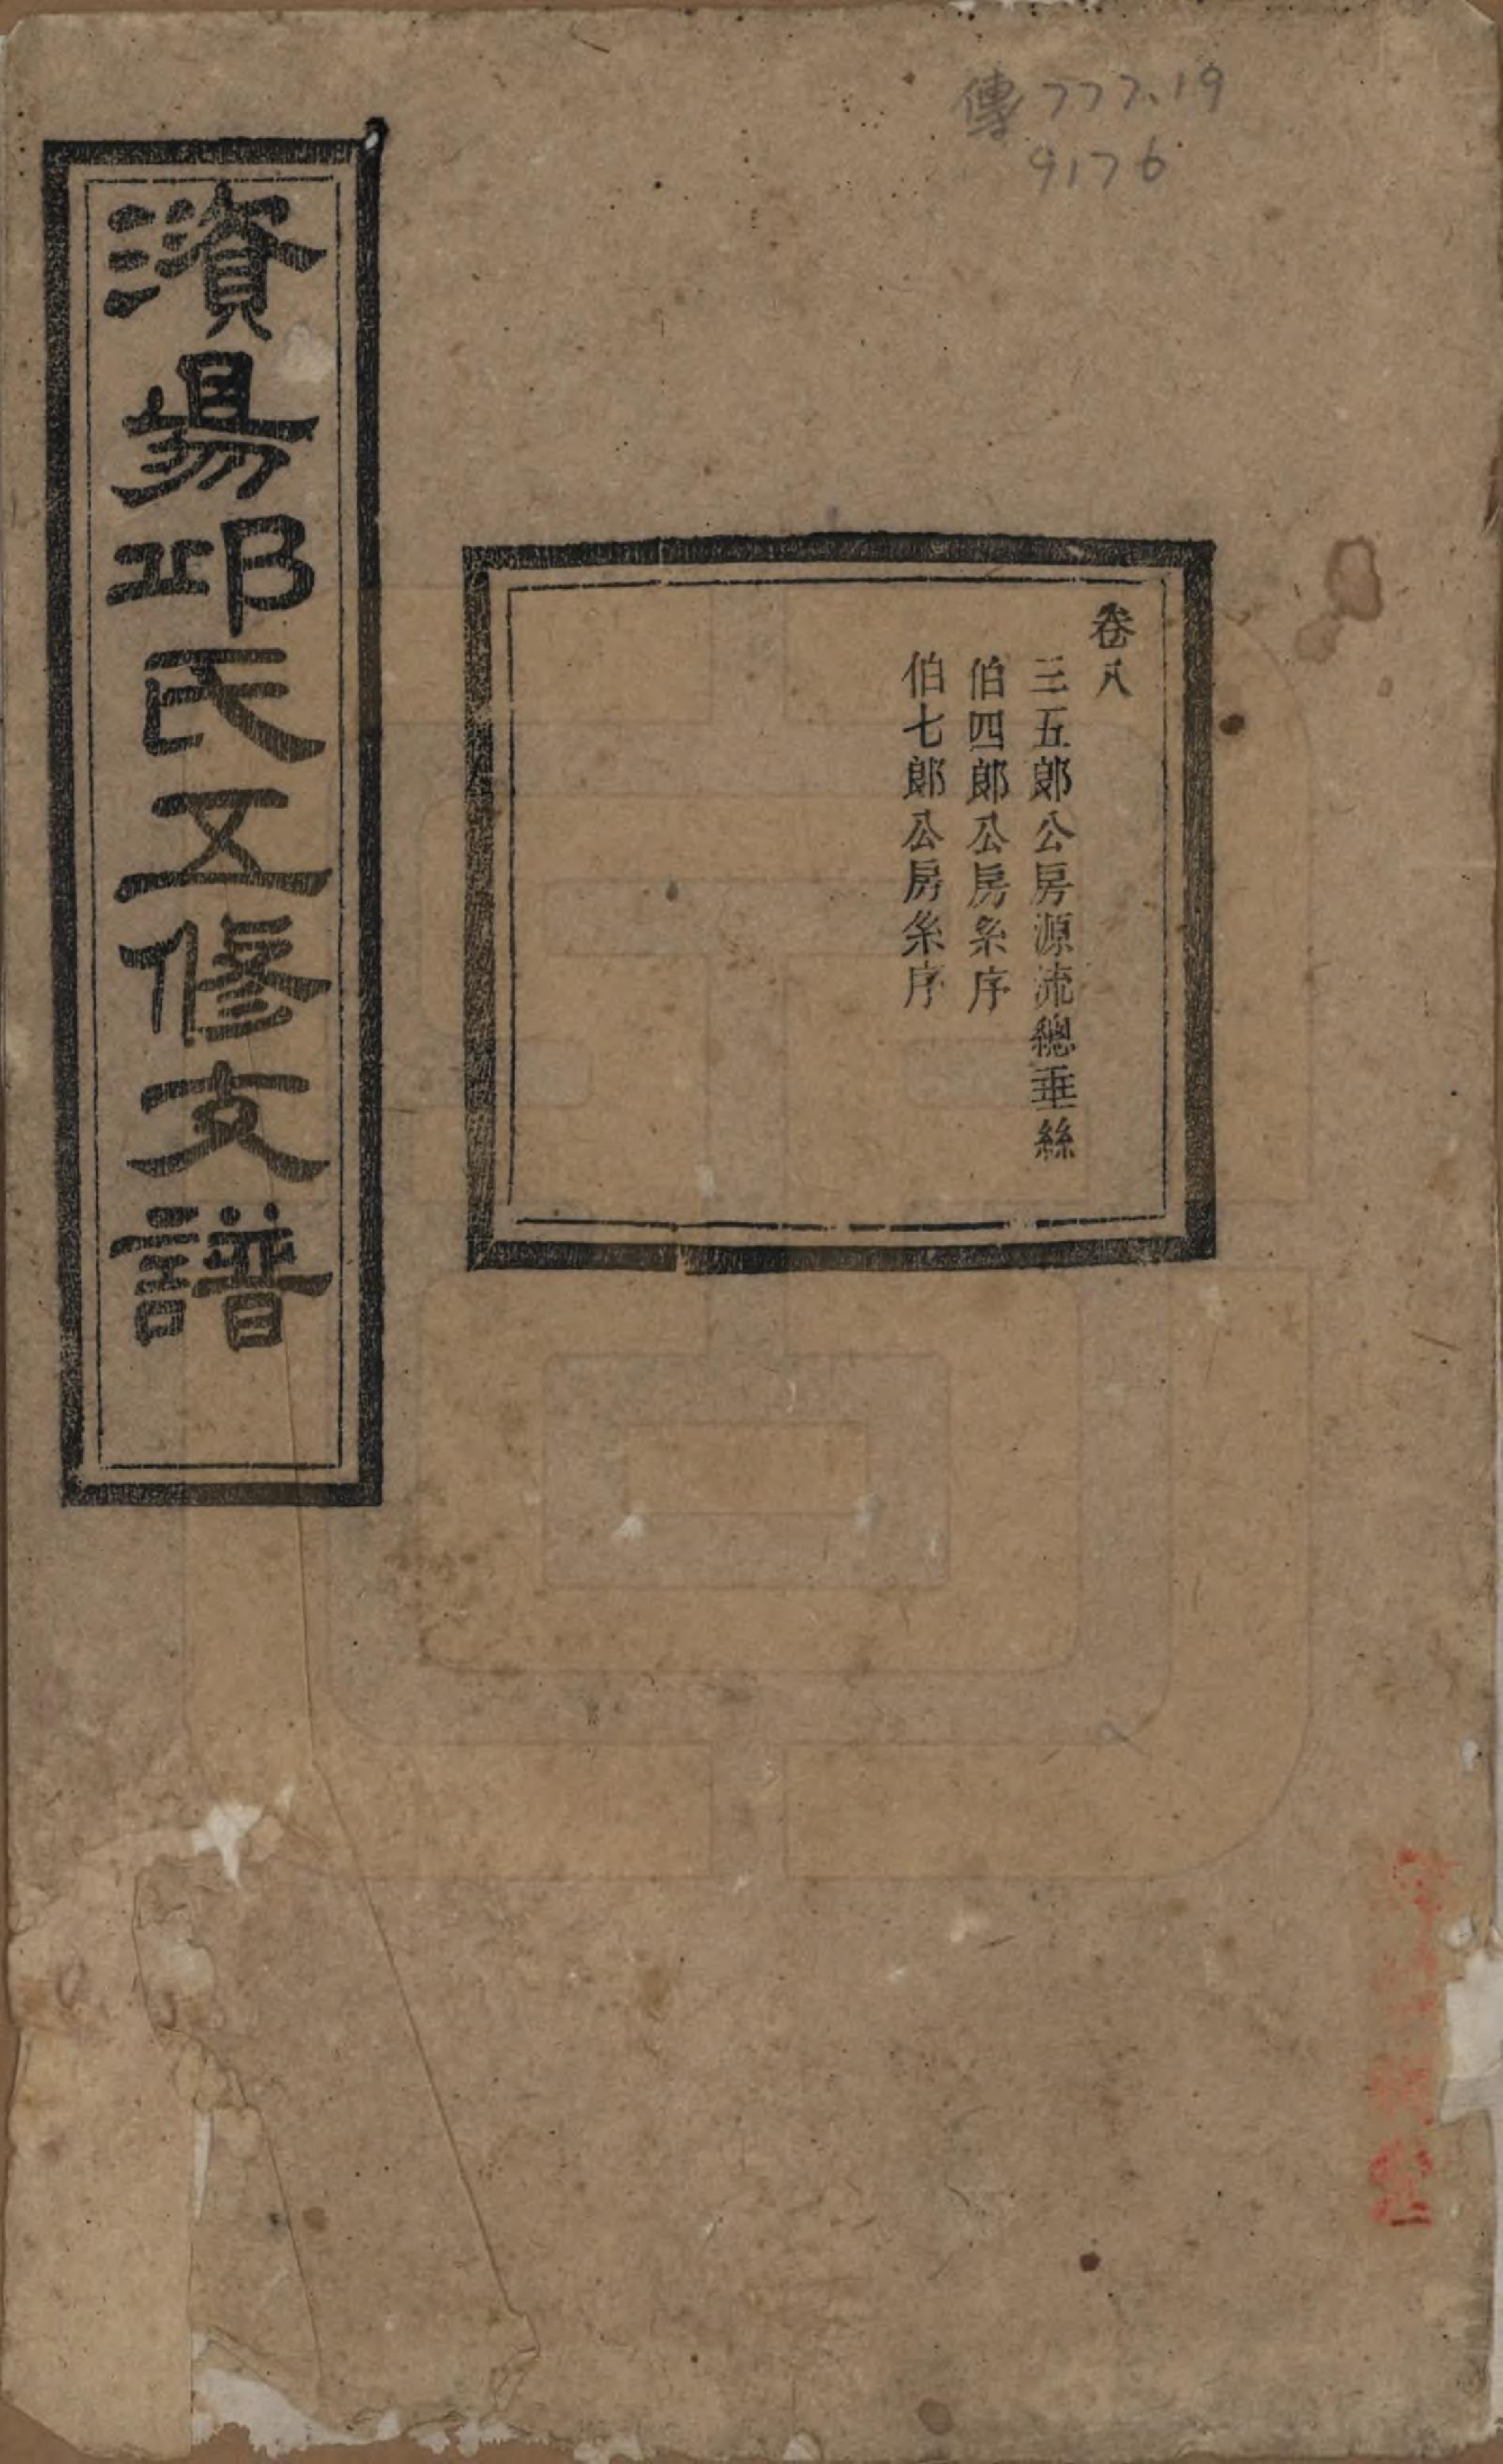 傳777.19
9176
卷八
三五郎公房源流總垂絲
伯四郎公房系序
伯七郎公房系序
濱昜邱氏五修支譜